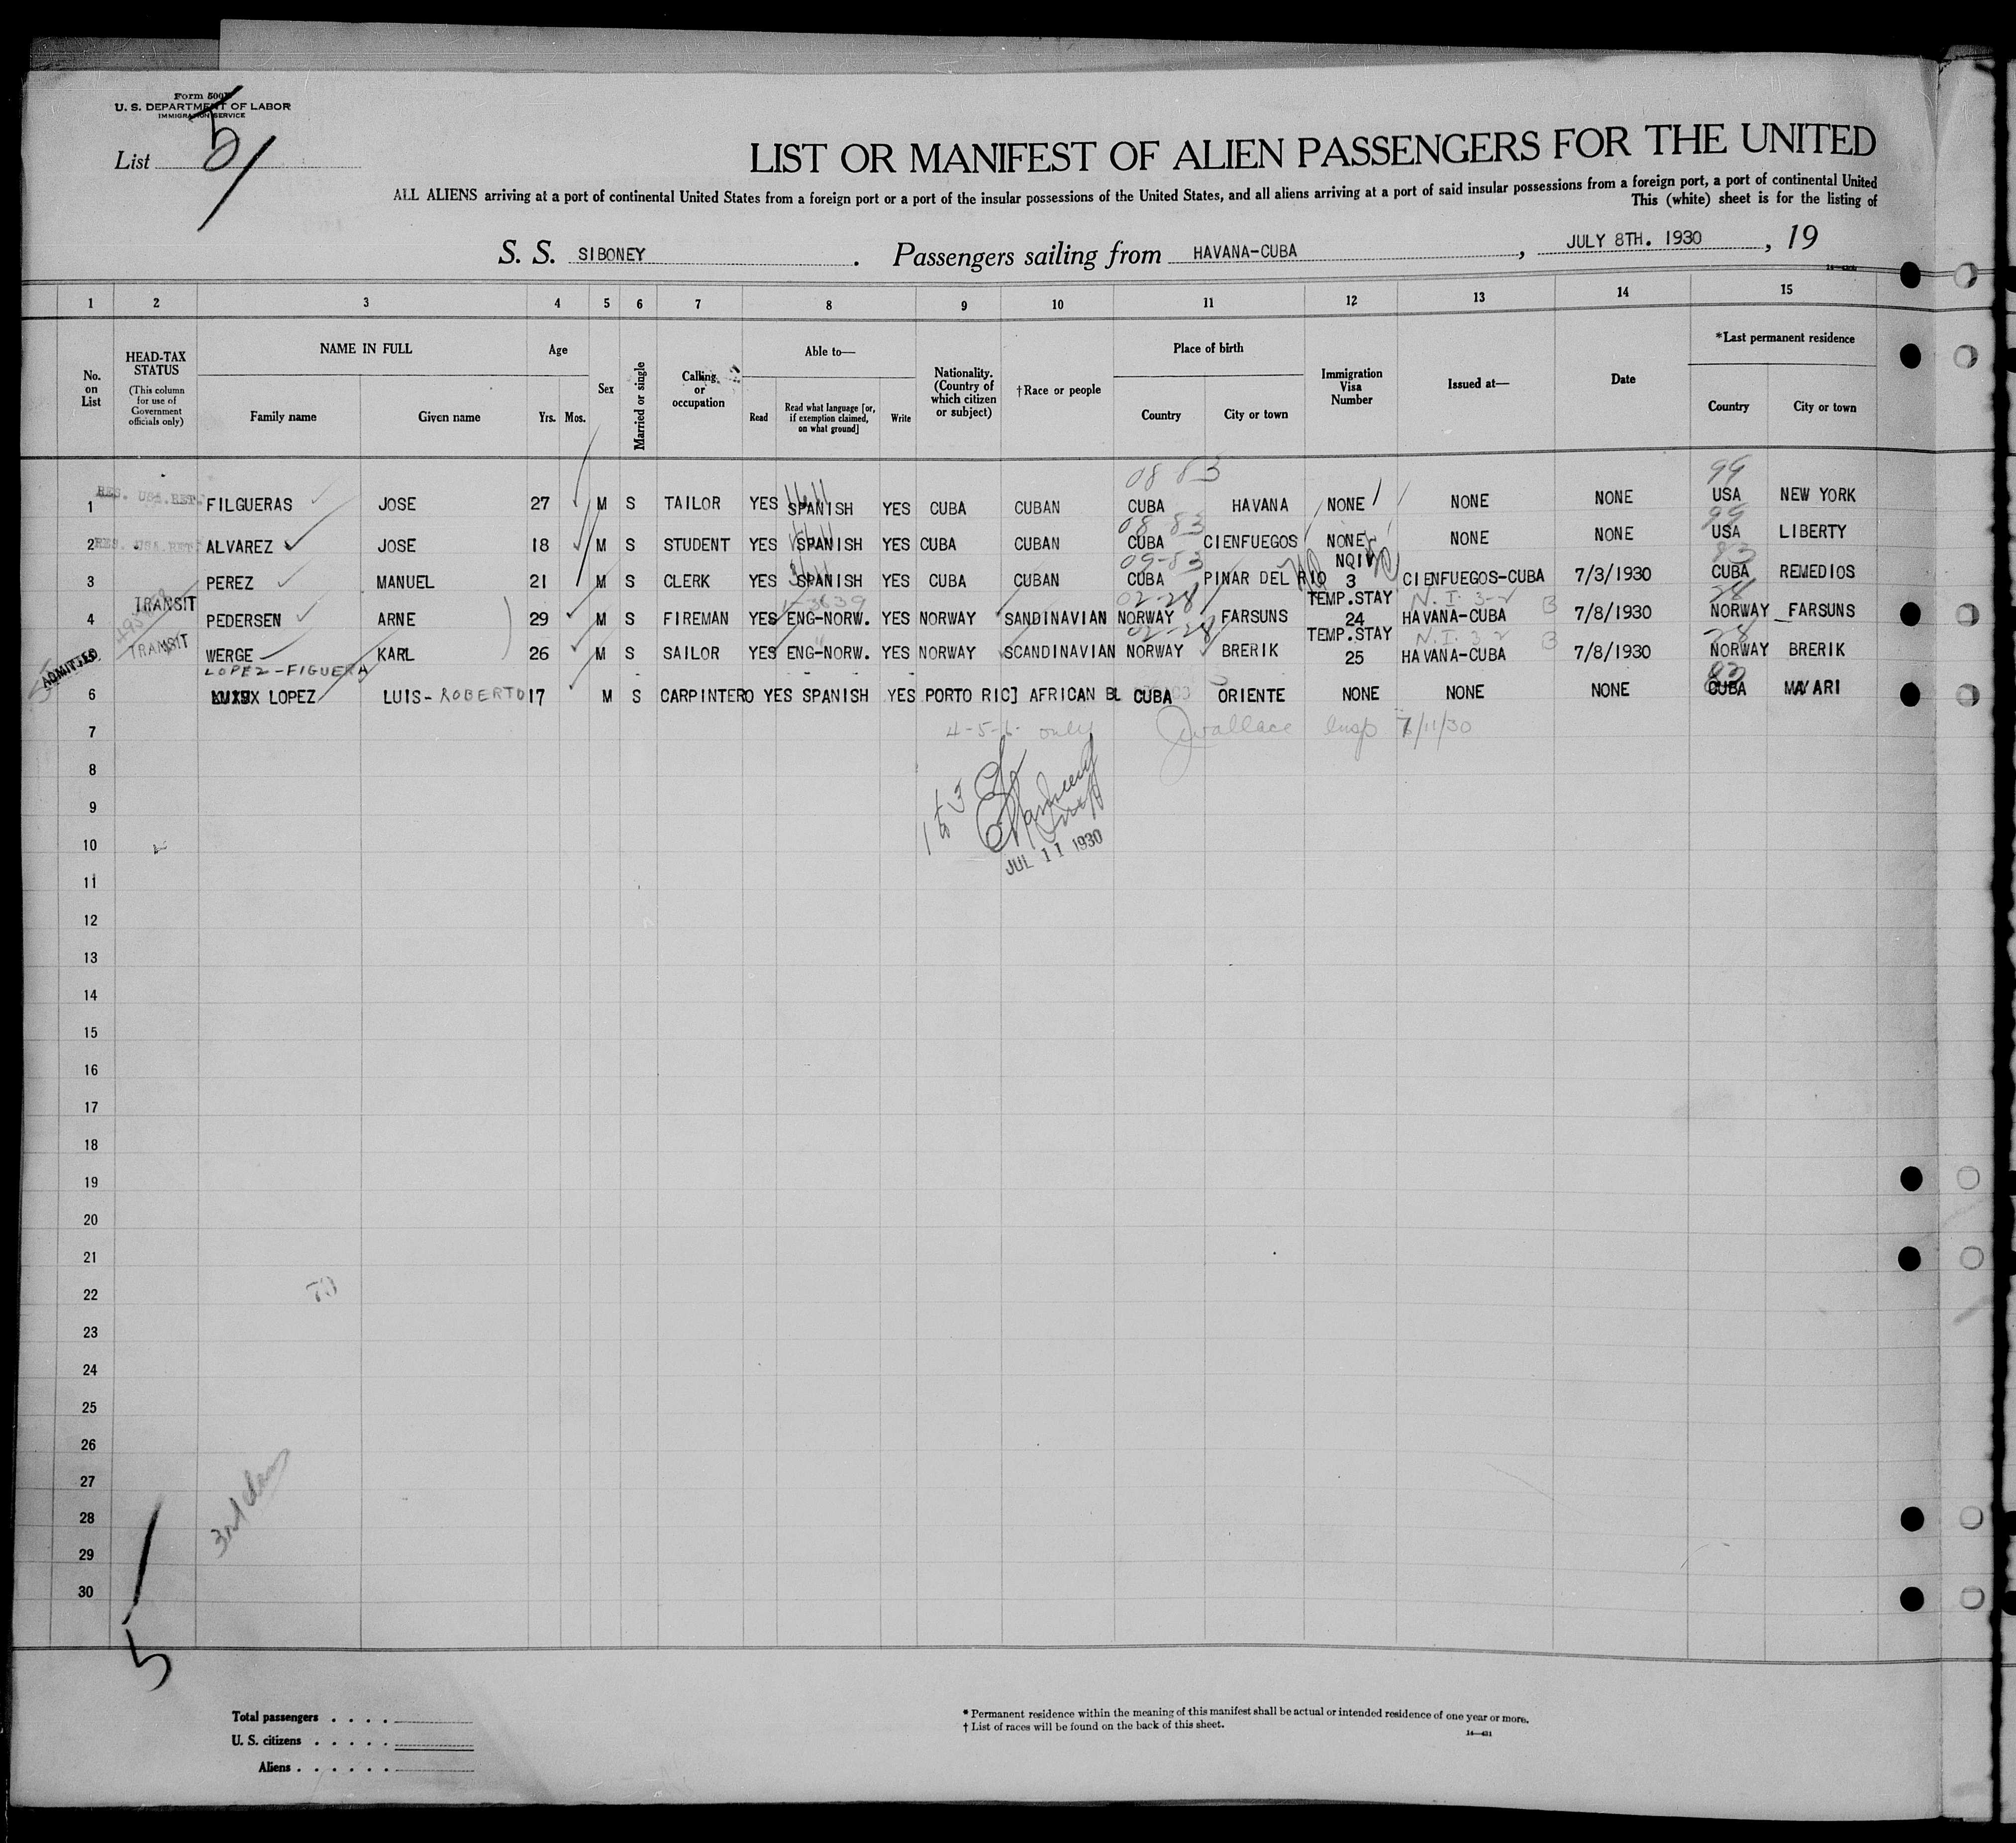 Form 500
U. S. DEPARTMENT OF LABOR
IMMIGRATION SERVICE
List 5
LIST OR MANIFEST OF ALIEN PASSENGERS FOR THE UNITED
ALL ALIENS arriving at a port of continental United States from a foreign port or a port of the insular possessions of the United States, and all aliens arriving at a port of said insular possessions from a foreign port, a port of continental United
This (white) sheet is for the listing of
S. S. SIBONEY . Passengers sailing from HAVANA-CUBA , JULY 8TH. 1930 , 19
1 2 3 4 5 6 7 8 9 10 11 12 13 14 15
No. on List
HEAD-TAX STATUS
(This column for use of Government officials only)
NAME IN FULL
Family name Given name
Age
Yrs. Mos.
Sex
Married or single
Calling or occupation
Able to—
Read
Read what language [or, if exemption claimed, on what ground]
Write
Nationality. (Country of which citizen or subject)
† Race or people
Place of birth
Country City or town
Immigration Visa Number
Issued at—
Date
*Last permanent residence
Country City or town
08 83 99
1 RES. USA.RET. FILGUERAS JOSE 27 M S TAILOR YES SPANISH YES CUBA CUBAN CUBA HAVANA NONE NONE NONE USA NEW YORK
08 83 99
2 RES. USA.RET. ALVAREZ JOSE 18 M S STUDENT YES SPANISH YES CUBA CUBAN CUBA CIENFUEGOS NONE NONE NONE USA LIBERTY
09-83 NQIV 83
3 PEREZ MANUEL 21 M S CLERK YES SPANISH YES CUBA CUBAN CUBA PINAR DEL RIO 3 CIENFUEGOS-CUBA 7/3/1930 CUBA REMEDIOS
TRANSIT 02-28 TEMP.STAY N.I. 3-2 28
4 PEDERSEN ARNE 29 M S FIREMAN YES ENG-NORW. YES NORWAY SANDINAVIAN NORWAY FARSUNS 24 HAVANA-CUBA B 7/8/1930 NORWAY FARSUNS
TRANSIT 02-28 TEMP.STAY N.I. 3 2 28
5 WERGE KARL 26 M S SAILOR YES ENG-NORW. YES NORWAY SCANDINAVIAN NORWAY BRERIK 25 HAVANA-CUBA B 7/8/1930 NORWAY BRERIK
ADMITTED LOPEZ-FIGUERA 83
6 LOPEZ LUIS-ROBERTO 17 M S CARPINTERO YES SPANISH YES PORTO RIC] AFRICAN BL CUBA ORIENTE NONE NONE NONE CUBA MAYARI
7 4-5-6 only JWallace Insp 7/11/30
8
9 1 to 3
10 JUL 11 1930
11
12
13
14
15
16
17
18
19
20
21
22
23
24
25
26
27
28 3rd class
29
30
5
Total passengers . . . .
U. S. citizens . . . . .
Aliens . . . . . .
* Permanent residence within the meaning of this manifest shall be actual or intended residence of one year or more.
† List of races will be found on the back of this sheet.